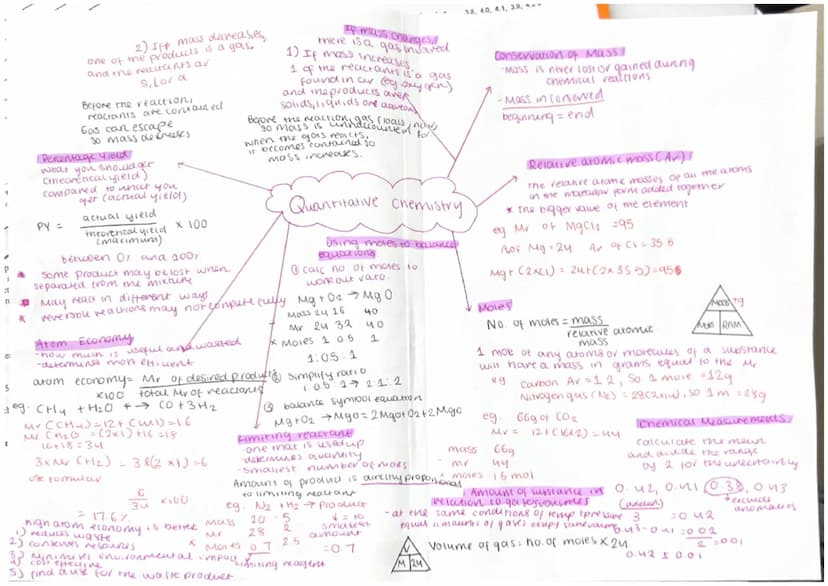 3.8, 4.0, 4.1, 3.9,
2) Iff mass decreases,
one of the products is a gas.
and the reactants are
s, l or a
Before the reaction,
reactants are contained
Gas can escape
so mass decreases
If mass changes,
there is a gas involved
1) If mass increases
1 of the reactants is a gas
found in air (eg. oxygen)
and the products are
solids, liquids are aqueous
Before the reaction, gas floats,
so mass is unnaccounted for
when the gas reacts,
it becomes contained so
mass increases.
Conservation of Mass
- Mass is never lost or gained during
chemical reactions
- Mass in conserved
beginning = end
Percentage Yield
what you should get
(theoretical yield)
compared to what you
get (actual yield)
PY = actual yield
theoretical yield
(maximum)
× 100
between 0% and 100%
* some product may be lost when
separated from the mixture
* May react in different ways
* reversible reactions may not compete fully
Quantitative Chemistry
Relative atomic mass (Ar)
The relative atomic masses of all the atoms
in the molecular form added together
* the bigger value of the element
eg Mr of MgCl2 = 95
Ar of Mg = 24 Ar of Cl = 35.5
Mg + (2×Cl) = 24 + (2×35.5) = 95
Using moles to balance
equations
① Calc no. of moles to
work out ratio.
Mg + O2 → MgO
Mass 24 16 40
Mr 24 32 40
* Moles 1 0.5 1
1:0.5:1
② Simplify ratio
1:0.5:1 → 2:1:2
③ balance symbol equation
Mg + O2 → MgO = 2Mg + O2 → 2MgO
Moles
No. of moles = mass
relative atomic
mass
Mass
Mol RAM
1 mole of any atoms or molecules of a substance
will have a mass in grams equal to the Mr
eg Carbon Ar = 12, so 1 mole = 12g
Nitrogen gas (N2) = 28 (2×14), so 1m = 28g
eg. 66g of CO2
Mr = 12 + (16×2) = 44
mass 66g
mr 44
moles 1.5 mol
Atom Economy
- how much is useful and wasted
- determines most efficient
atom economy = Mr of desired product
total Mr of reactants
×100
eg. CH4 + H2O → CO + 3H2
Mr (CH4) = 12 + (4×1) = 16
Mr (H2O) = (2×1) + 16 = 18
16 + 18 = 34
3 × Mr (H2) = 3 × (2×1) = 6
use formular
6
34
×100
= 17.6%
high atom economy is better
1) reduces waste
2) conserves resources
3) minimises environmental impact
4) cost effective
5) find a use for the waste product
Limiting reactant
- one that is used up
- determines quantity
- smallest number of moles
Amount of product is directly proportional
to limiting reactant
eg. N2 + H2 → product
Mass 20 5
Mr 28 2
* Moles 0.7 2.5
limiting reagent
smallest
amount
= 0.7
Chemical Measurements
calculate the mean
and divide the range
by 2 for the uncertainty
0.42, 0.41, 0.38, 0.43
* exclude
anomalies
3 = 0.42
0.43 - 0.41 = 0.02
0.02
2 = 0.01
0.42 ± 0.01
Amount of substance in
relation to gases volumes
- at the same conditions of temp/pressure
equal amounts of gases occupy same volume
V
M 24
Volume of gas = no. of moles × 24